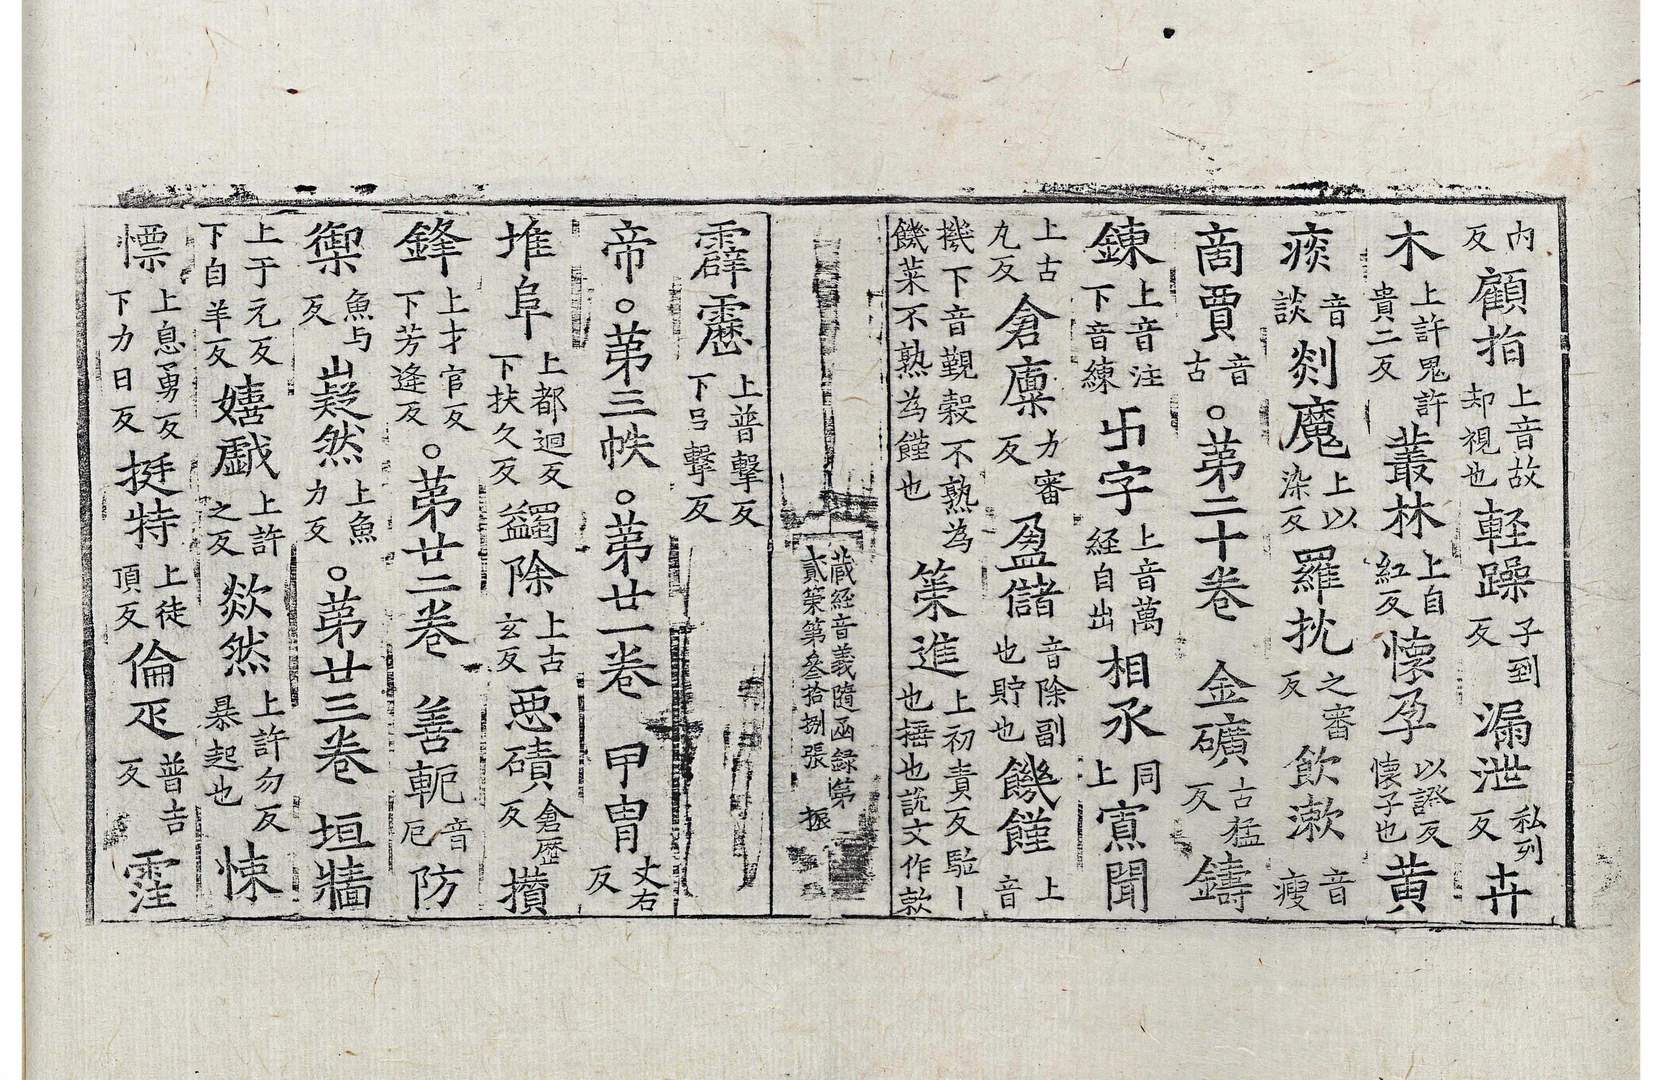 内反顧指上音故却視也輕躁子到反漏泄私列反卉
木上許鬼許貴二反叢林上自紅反懷孕以證反懷子也黄
痰音談剡魔上以染反羅㧕之審反飲漱音瘦
啇賈音古○苐二十卷 金礦古猛反鑄
鍊上音注下音練卐字上音萬経自出相𣴎同上𡩋聞
上古九反倉廩力審反盈儲音除副也貯也饑饉上音
機下音覲穀不熟為饑菜不熟為饉也䇿進上初責反駈丨也捶也說文作敕
藏經音義隨函録第貳策第叄拾捌張 振
霹靂上普擊反下吕擊反
帝○苐三帙○苐廿一卷 甲胄丈右反
堆阜上都迴反下扶久反蠲除上古玄反惡磧倉歷反攢
鋒上才官反下芳逢反○苐廿二卷 善軛音厄防
禦魚与反嶷然上魚力反○苐廿三卷 垣牆
上于元反下自羊反嬉戲上許之反欻然上許勿反暴起也悚
慓上息勇反下力日反挺特上徒頂反倫疋普吉反霔